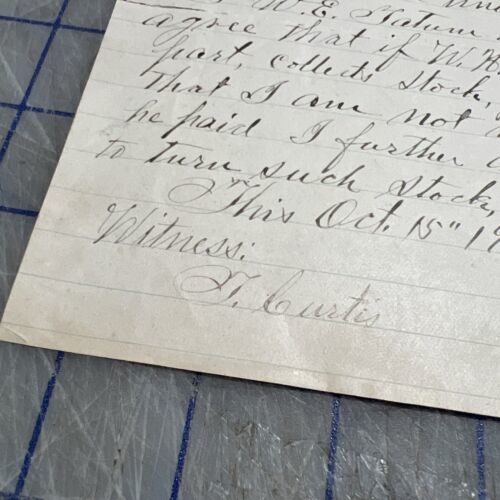 W. E. Tatum
agree that if W.
part, collects stock,
that I am not
he paid I further
to turn such stock,
This Oct. 15" 19
Witness:
T. Curtis